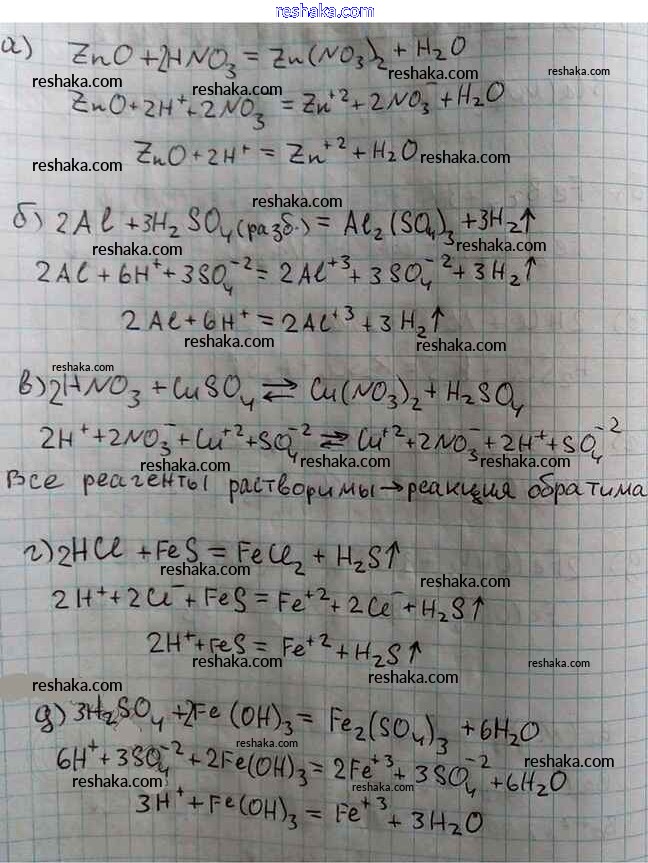 reshaka.com
а) ZnO + 2HNO₃ = Zn(NO₃)₂ + H₂O
reshaka.com reshaka.com reshaka.com
ZnO + 2H⁺ + 2NO₃ = Zn⁺² + 2NO₃⁻ + H₂O
reshaka.com reshaka.com
ZnO + 2H⁺ = Zn⁺² + H₂O reshaka.com
reshaka.com
reshaka.com
б) 2Al + 3H₂SO₄(разб.) = Al₂(SO₄)₃ + 3H₂↑
reshaka.com reshaka.com
2Al + 6H⁺ + 3SO₄⁻² = 2Al⁺³ + 3SO₄⁻² + 3H₂↑
reshaka.com reshaka.com
2Al + 6H⁺ = 2Al⁺³ + 3H₂↑
reshaka.com
reshaka.com
в) 2HNO₃ + CuSO₄ ⇄ Cu(NO₃)₂ + H₂SO₄
reshaka.com
2H⁺ + 2NO₃⁻ + Cu⁺² + SO₄⁻² ⇄ Cu⁺² + 2NO₃⁻ + 2H⁺ + SO₄⁻²
reshaka.com reshaka.com
Все реагенты растворимы → реакция обратима
reshaka.com reshaka.com
г) 2HCl + FeS = FeCl₂ + H₂S↑
reshaka.com reshaka.com
2H⁺ + 2Cl⁻ + FeS = Fe⁺² + 2Cl⁻ + H₂S↑
reshaka.com
2H⁺ + FeS = Fe⁺² + H₂S↑
reshaka.com reshaka.com
reshaka.com reshaka.com
д) 3H₂SO₄ + 2Fe(OH)₃ = Fe₂(SO₄)₃ + 6H₂O
reshaka.com reshaka.com
6H⁺ + 3SO₄⁻² + 2Fe(OH)₃ = 2Fe⁺³ + 3SO₄⁻² + 6H₂O
reshaka.com reshaka.com
3H⁺ + Fe(OH)₃ = Fe⁺³ + 3H₂O
reshaka.com
reshaka.com